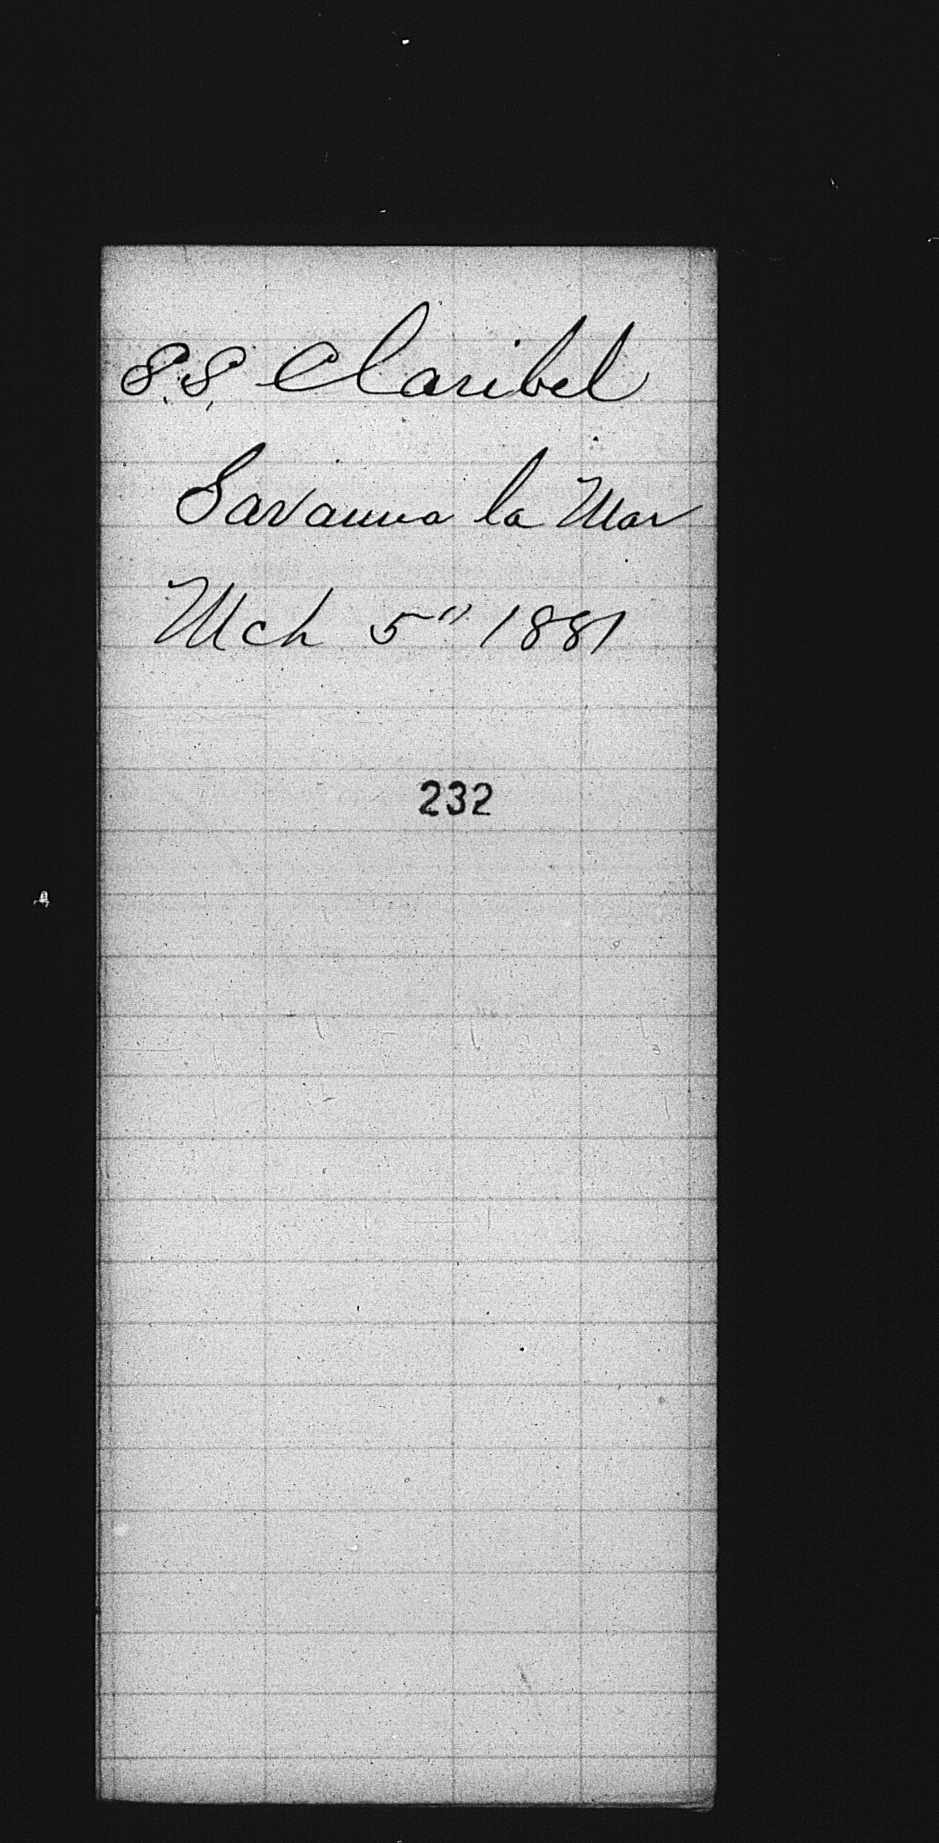 S.S. Claribel
Savanna la Mar
Mch 5" 1881
232